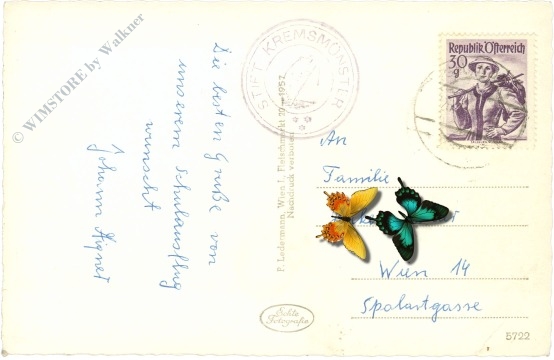 © WIMSTORE by Walkner
Die besten Grüße von
unserem Schulausflug
wünscht
Johanna
STIFT KREMSMÜNSTER
P. Ledermann, Wien I., Fleischmarkt 20 — 1957
Nachdruck verboten
Echte
Fotografie
Republik Österreich
30
g
An
Familie
Wien 14
Spalartgasse
5722